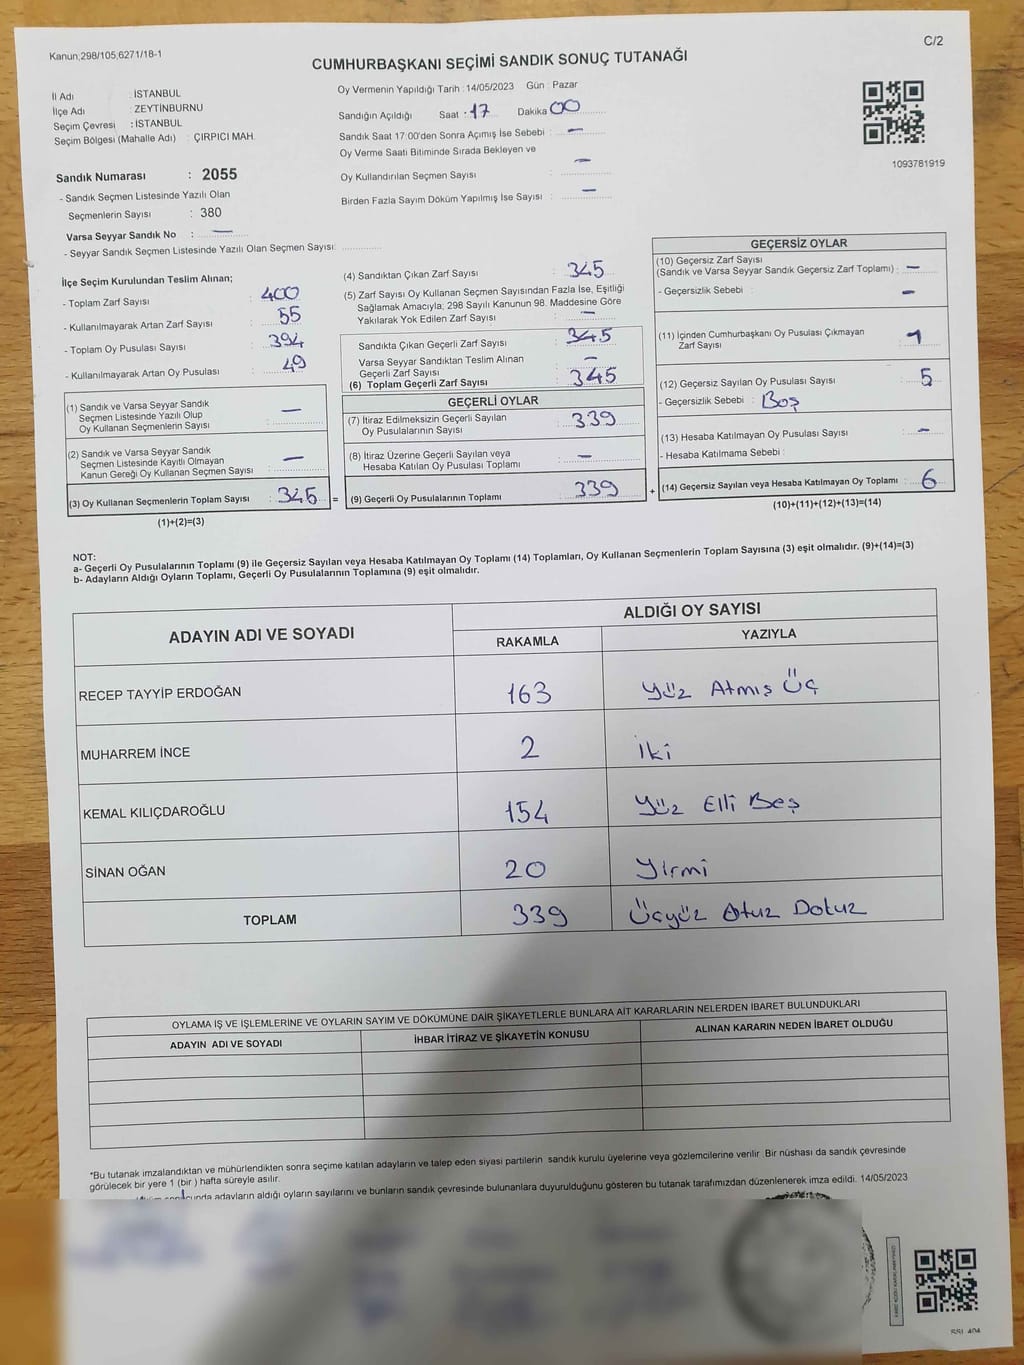 Kanun,298/105,6271/18-1
C/2
CUMHURBAŞKANI SEÇİMİ SANDIK SONUÇ TUTANAĞI
İl Adı : İSTANBUL
İlçe Adı : ZEYTİNBURNU
Seçim Çevresi : İSTANBUL
Seçim Bölgesi (Mahalle Adı) : ÇIRPICI MAH.
Oy Vermenin Yapıldığı Tarih : 14/05/2023 Gün : Pazar
Sandığın Açıldığı Saat : 17 Dakika 00
Sandık Saat 17:00'den Sonra Açımış İse Sebebi : –
Oy Verme Saati Bitiminde Sırada Bekleyen ve
Oy Kullandırılan Seçmen Sayısı : –
Birden Fazla Sayım Döküm Yapılmış İse Sayısı : –
1093781919
Sandık Numarası : 2055
- Sandık Seçmen Listesinde Yazılı Olan
Seçmenlerin Sayısı : 380
Varsa Seyyar Sandık No : –
- Seyyar Sandık Seçmen Listesinde Yazılı Olan Seçmen Sayısı:
İlçe Seçim Kurulundan Teslim Alınan;
- Toplam Zarf Sayısı : 400
- Kullanılmayarak Artan Zarf Sayısı : 55
- Toplam Oy Pusulası Sayısı : 394
- Kullanılmayarak Artan Oy Pusulası : 49
(1) Sandık ve Varsa Seyyar Sandık
Seçmen Listesinde Yazılı Olup
Oy Kullanan Seçmenlerin Sayısı : –
(2) Sandık ve Varsa Seyyar Sandık
Seçmen Listesinde Kayıtlı Olmayan
Kanun Gereği Oy Kullanan Seçmen Sayısı : –
(3) Oy Kullanan Seçmenlerin Toplam Sayısı : 345 =
(1)+(2)=(3)
(4) Sandıktan Çıkan Zarf Sayısı : 345
(5) Zarf Sayısı Oy Kullanan Seçmen Sayısından Fazla İse, Eşitliği
Sağlamak Amacıyla; 298 Sayılı Kanunun 98. Maddesine Göre
Yakılarak Yok Edilen Zarf Sayısı : –
Sandıkta Çıkan Geçerli Zarf Sayısı : 345
Varsa Seyyar Sandıktan Teslim Alınan
Geçerli Zarf Sayısı : –
(6) Toplam Geçerli Zarf Sayısı : 345
GEÇERLİ OYLAR
(7) İtiraz Edilmeksizin Geçerli Sayılan
Oy Pusulalarının Sayısı : 339
(8) İtiraz Üzerine Geçerli Sayılan veya
Hesaba Katılan Oy Pusulası Toplamı : –
(9) Geçerli Oy Pusulalarının Toplamı : 339 +
GEÇERSİZ OYLAR
(10) Geçersiz Zarf Sayısı
(Sandık ve Varsa Seyyar Sandık Geçersiz Zarf Toplamı) : –
- Geçersizlik Sebebi : –
(11) İçinden Cumhurbaşkanı Oy Pusulası Çıkmayan
Zarf Sayısı : 1
(12) Geçersiz Sayılan Oy Pusulası Sayısı : 5
- Geçersizlik Sebebi : Boş
(13) Hesaba Katılmayan Oy Pusulası Sayısı : –
- Hesaba Katılmama Sebebi :
(14) Geçersiz Sayılan veya Hesaba Katılmayan Oy Toplamı : 6
(10)+(11)+(12)+(13)=(14)
NOT:
a- Geçerli Oy Pusulalarının Toplamı (9) ile Geçersiz Sayılan veya Hesaba Katılmayan Oy Toplamı (14) Toplamları, Oy Kullanan Seçmenlerin Toplam Sayısına (3) eşit olmalıdır. (9)+(14)=(3)
b- Adayların Aldığı Oyların Toplamı, Geçerli Oy Pusulalarının Toplamına (9) eşit olmalıdır.
ADAYIN ADI VE SOYADI
ALDIĞI OY SAYISI
RAKAMLA YAZIYLA
RECEP TAYYİP ERDOĞAN 163 Yüz Atmış Üç
MUHARREM İNCE 2 İki
KEMAL KILIÇDAROĞLU 154 Yüz Elli Beş
SİNAN OĞAN 20 Yirmi
TOPLAM 339 Üçyüz Otuz Dokuz
OYLAMA İŞ VE İŞLEMLERİNE VE OYLARIN SAYIM VE DÖKÜMÜNE DAİR ŞİKAYETLERLE BUNLARA AİT KARARLARIN NELERDEN İBARET BULUNDUKLARI
ADAYIN ADI VE SOYADI İHBAR İTİRAZ VE ŞİKAYETİN KONUSU ALINAN KARARIN NEDEN İBARET OLDUĞU
*Bu tutanak imzalandıktan ve mühürlendikten sonra seçime katılan adayların ve talep eden siyasi partilerin sandık kurulu üyelerine veya gözlemcilerine verilir. Bir nüshası da sandık çevresinde
görülecek bir yere 1 (bir ) hafta süreyle asılır.
adayların aldığı oyların sayılarını ve bunların sandık çevresinde bulunanlara duyurulduğunu gösteren bu tutanak tarafımızdan düzenlenerek imza edildi. 14/05/2023